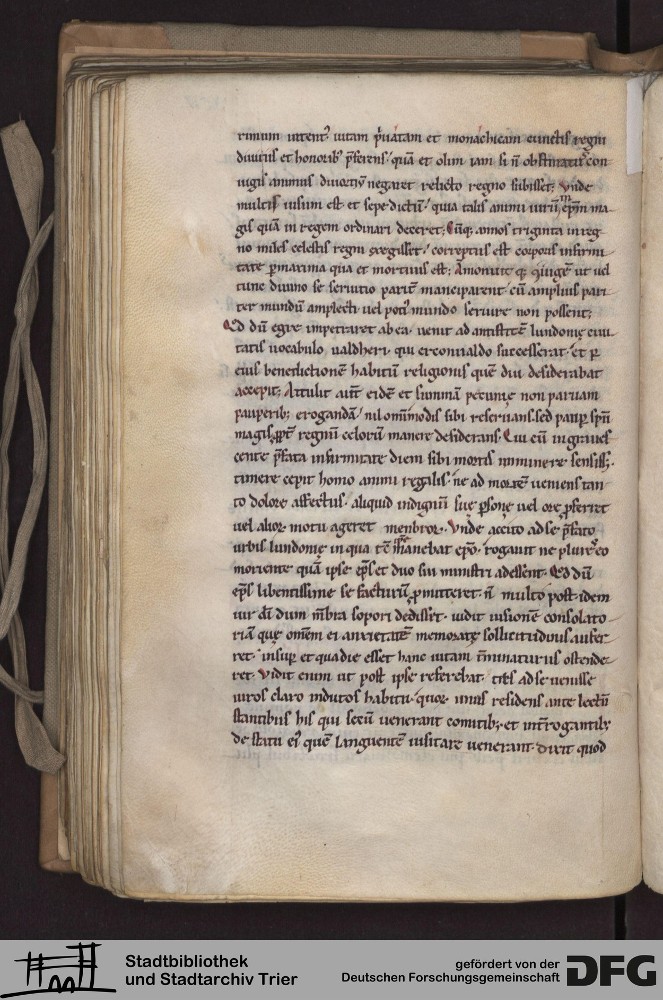 rimum intent᷒ uitam p̍uatam et monachicam cunctis regni
diuitiis et honorib᷒ p̄ferens / quā et olim iam si n̄ obstinatus con
iugis animus diuortiū negaret relicto regno subisset; Vnde
multis uisum est et sepe dictū / quia talis animi uirū ep̄m ma
gis quā in regem ordinari deceret; Cūq; annos triginta in reg
no miles celestis regni exegisset / correptus est corporis infirmi
tate p̱maxima qua et mortuus est; Amonuit q; ↄiugē ut uel
tunc diuino se seruitio parit̄ manciparent / cū amplius pari
ter mundū amplecti uel poti᷒ mundo seruire non possent;
Qd dū egre impetraret ab ea. uenit ad antistitē lundonię ciui
tatis uocabulo ualdheri. qui erconualdo successerat. et p̱
eius benedictionē habitū religionis quē diu desiderabat
accepit; Attulit aut̄ eidē et summā pecunię non paruam
pauperib; erogandā / nil om̄imodis sibi reseruans. sed paup̱ sp̄u
magis ꝓpt̄ regnū celorū manere desiderans. Qui cū ingraues
cente p̄fata infirmitate diem sibi mortis imminere sensiss;.
timere cepit homo animi regalis. ne ad mortē ueniens tan
to dolore affectus. aliquid indignū suę p̱sonę uel ore ꝓferret
uel alior. motu ageret menbror. Vnde accito ad se p̄fato
urbis lundonię in qua tc̄ manebat ep̄o. rogauit ne plures eo
moriente quā ipse ep̄s et duo sui ministri adessent. Qd dū
ep̄s libentissime se facturū ꝓmitteret. n̄ multo post idem
uir dī dum m̄bra sopori dedisset. uidit uisionē consolato
riā quę omēm ei anxietatē memoratę sollicitudinis aufer
ret. insup̱ et qua die esset hanc uitam t̄minaturus ostende
ret. Vidit enim ut post ipse referebat. tres ad se uenisse
uiros claro indutos habitu. quor. unus residens ante lectū
stantibus his qui secū uenerant comitib; et int̄rogantib;
de statu ei᷒ quē languentē uisitare uenerant. dixit quod
Stadtbibliothek
und Stadtarchiv Trier
gefördert von der
Deutschen Forschungsgemeinschaft
DFG